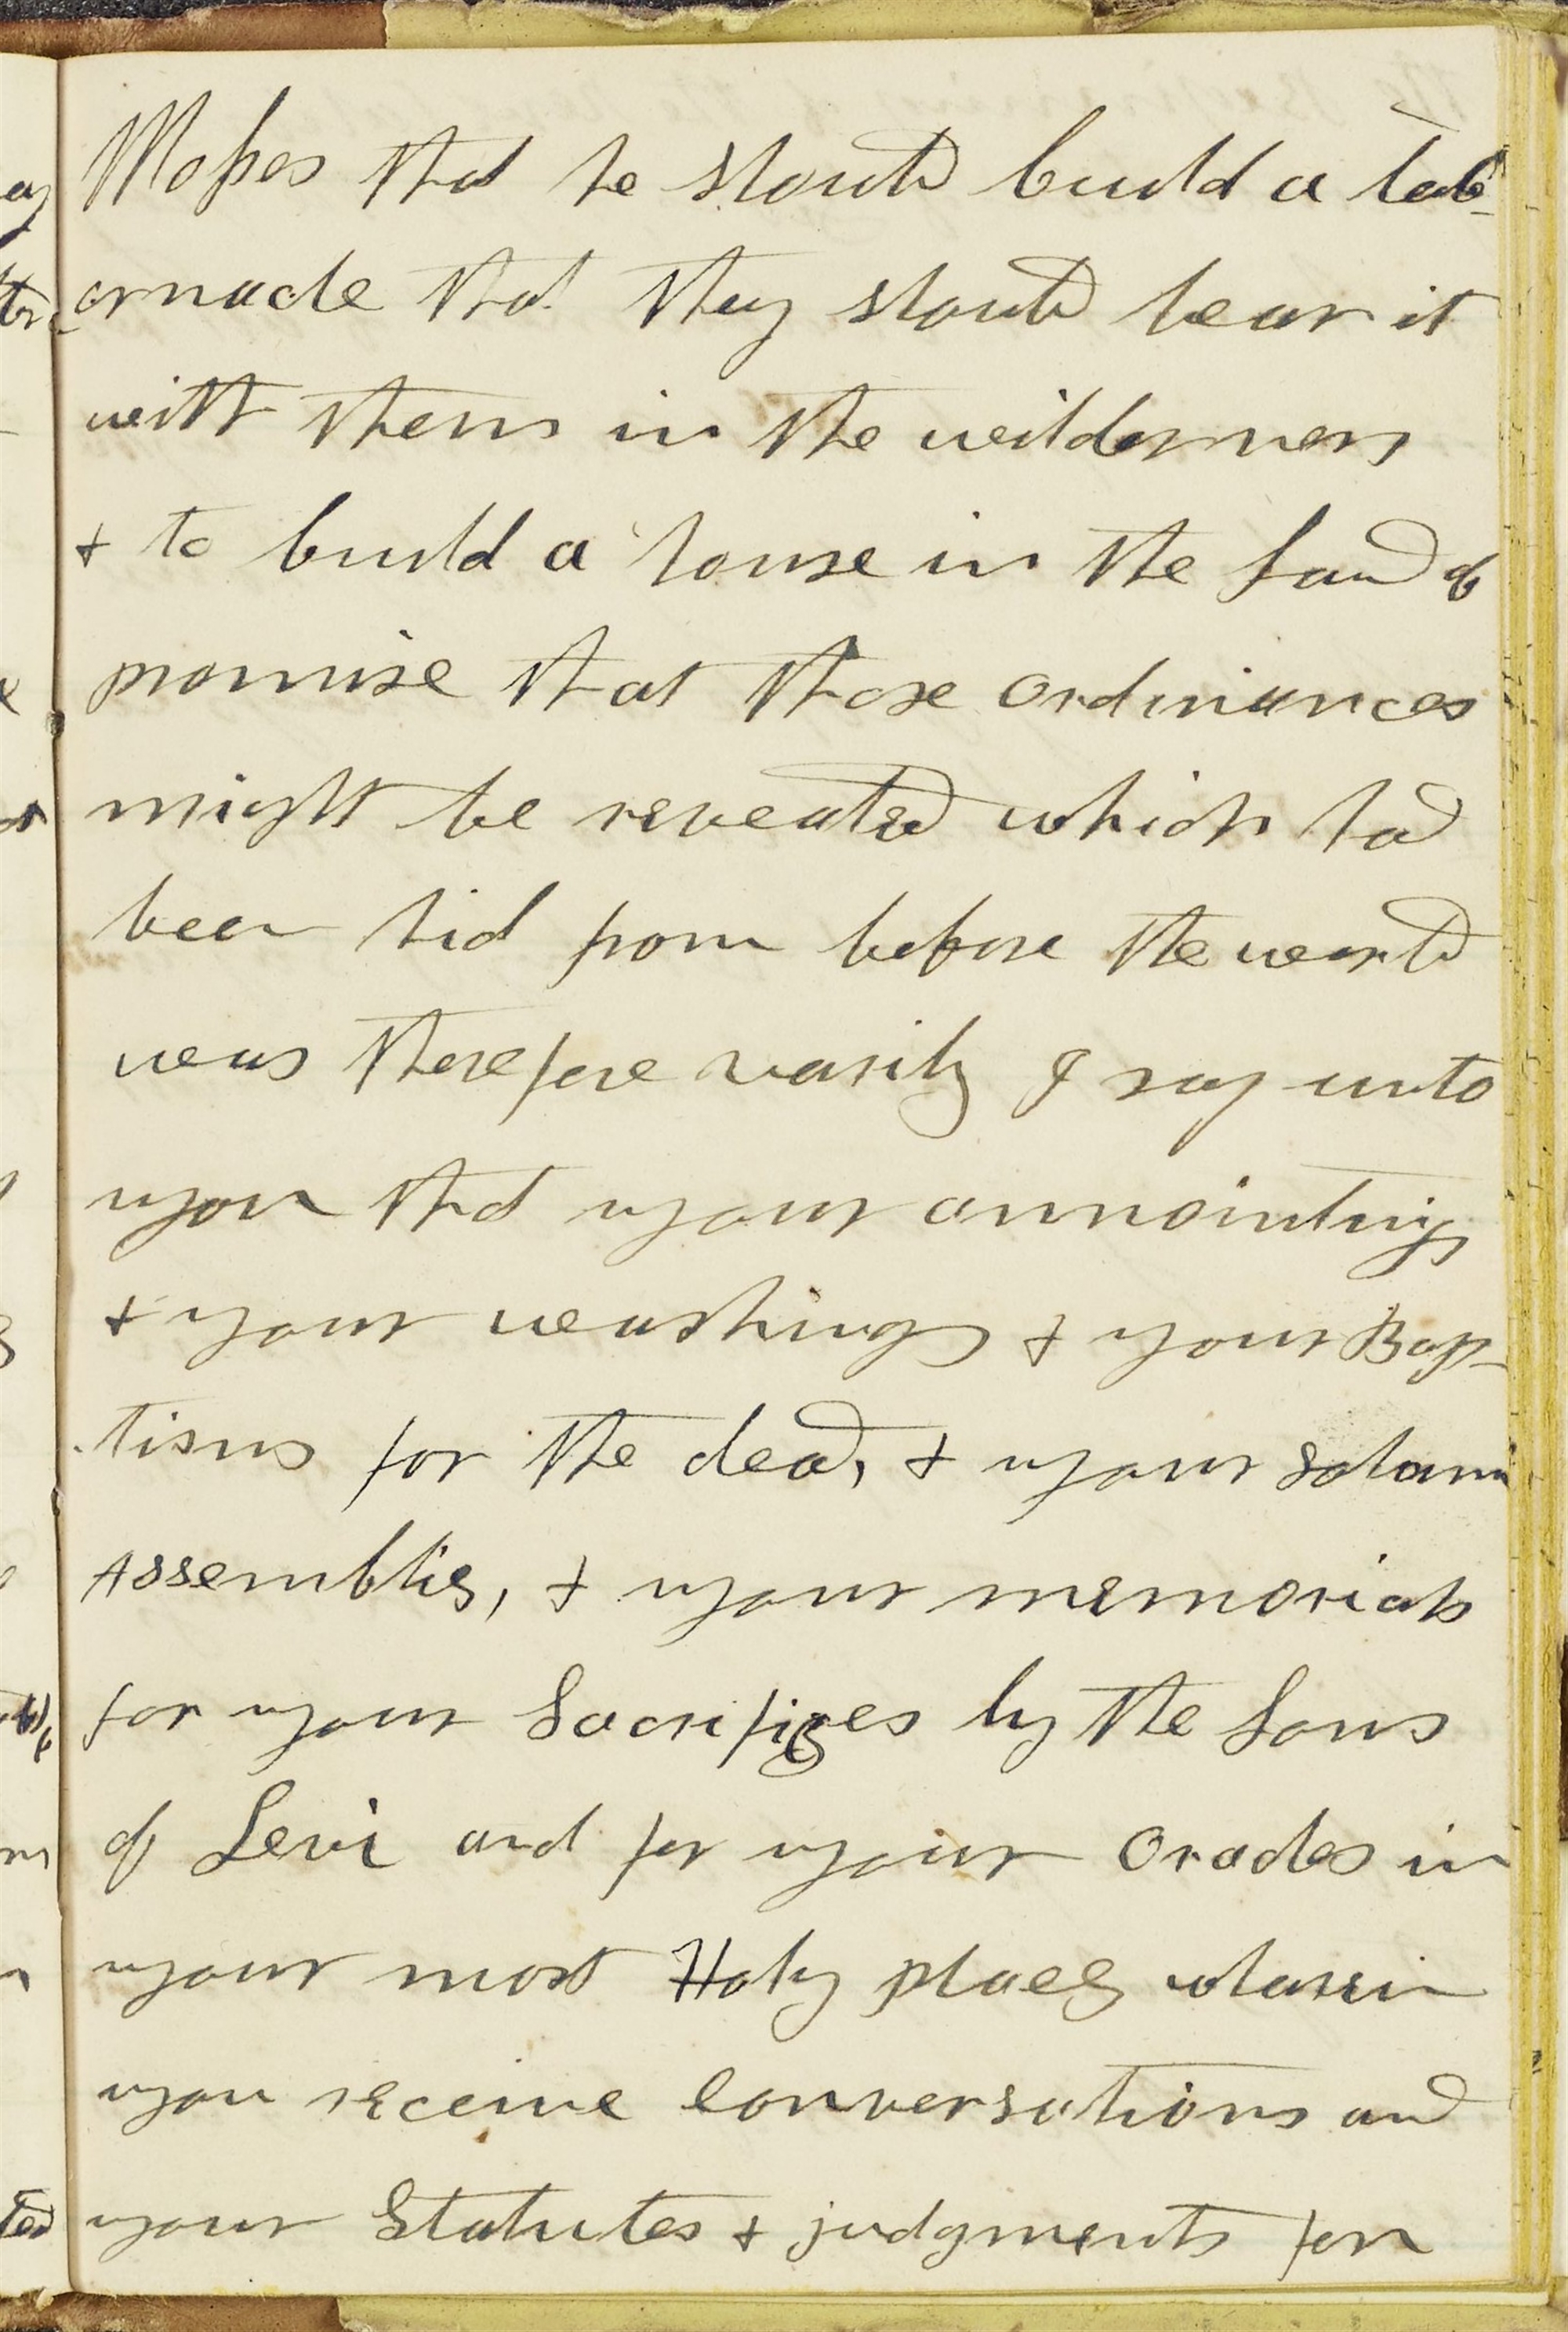 Mosses that he should build a tab-
ernacle that they should bear it
with them in the wilderness
& to build a house in the land of
promise that those ordinances
might be revealed which had
been hid from before the world
was therefore varily I say unto
you that your annointings
& your washings & your Bap-
tisms for the dead, & your solam
Assemblies, & your memorials
for your Sacrifices by the Sons
of Levi and for your Oracles in
your most Holy places wharin
you receive conversations and
your Statutes & judgments for